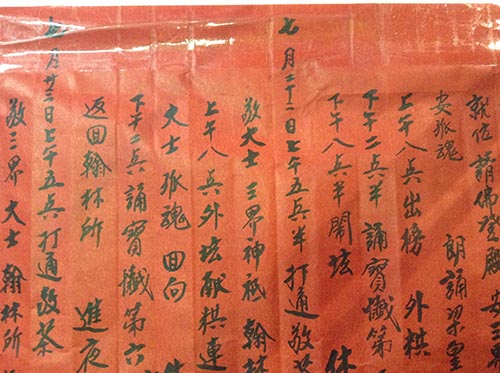 就位 請佛登廳 安三界
安孤魂 朗誦梁皇
上午八点出榜 外棋
下午二点半 誦寶懺第
下午八点半鬧坛 休
七月二十二日上午五点半 打通敬茶
敬大士 三界神祇 翰林
上午八点外坛献棋連
大士 孤魂 回向
下午二点誦寶懺第六
返回翰林所 進夜
七月廿三日上午五点打通敬茶
敬三界大士翰林所